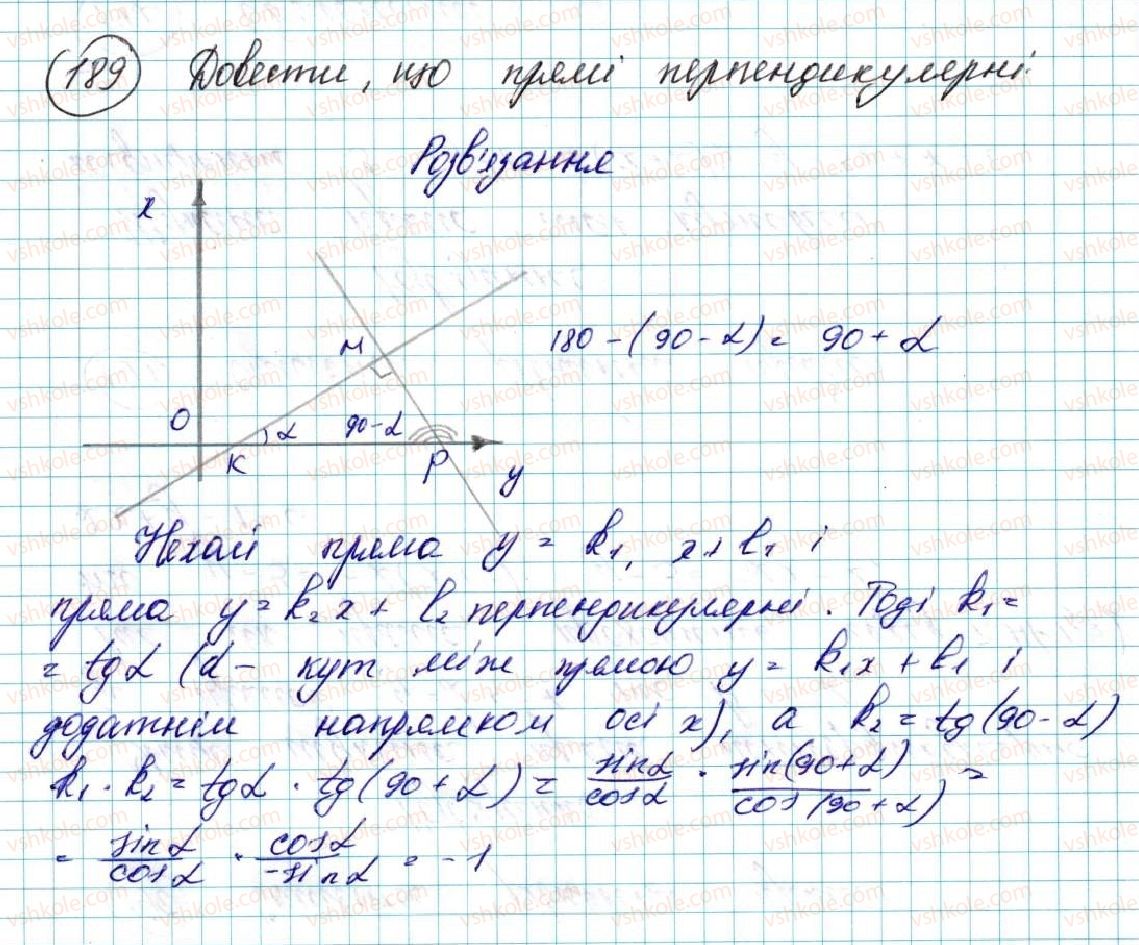 189 Довести, що прямі перпендикулярні.
Розв'язання
x
M
180 - (90 - α) = 90 + α
O
α
90-α
K
P
y
Нехай пряма y = k₁, x + l₁ і
пряма y = k₂x + l₂ перпендикулярні. Тоді k₁ =
= tgα (α - кут між прямою y = k₁x + l₁ і
додатнім напрямком осі x), а k₂ = tg(90-α)
k₁ · k₂ = tgα · tg(90+α) = sinα/cosα · sin(90+α)/cos(90+α) =
= sinα/cosα · cosα/-sinα = -1